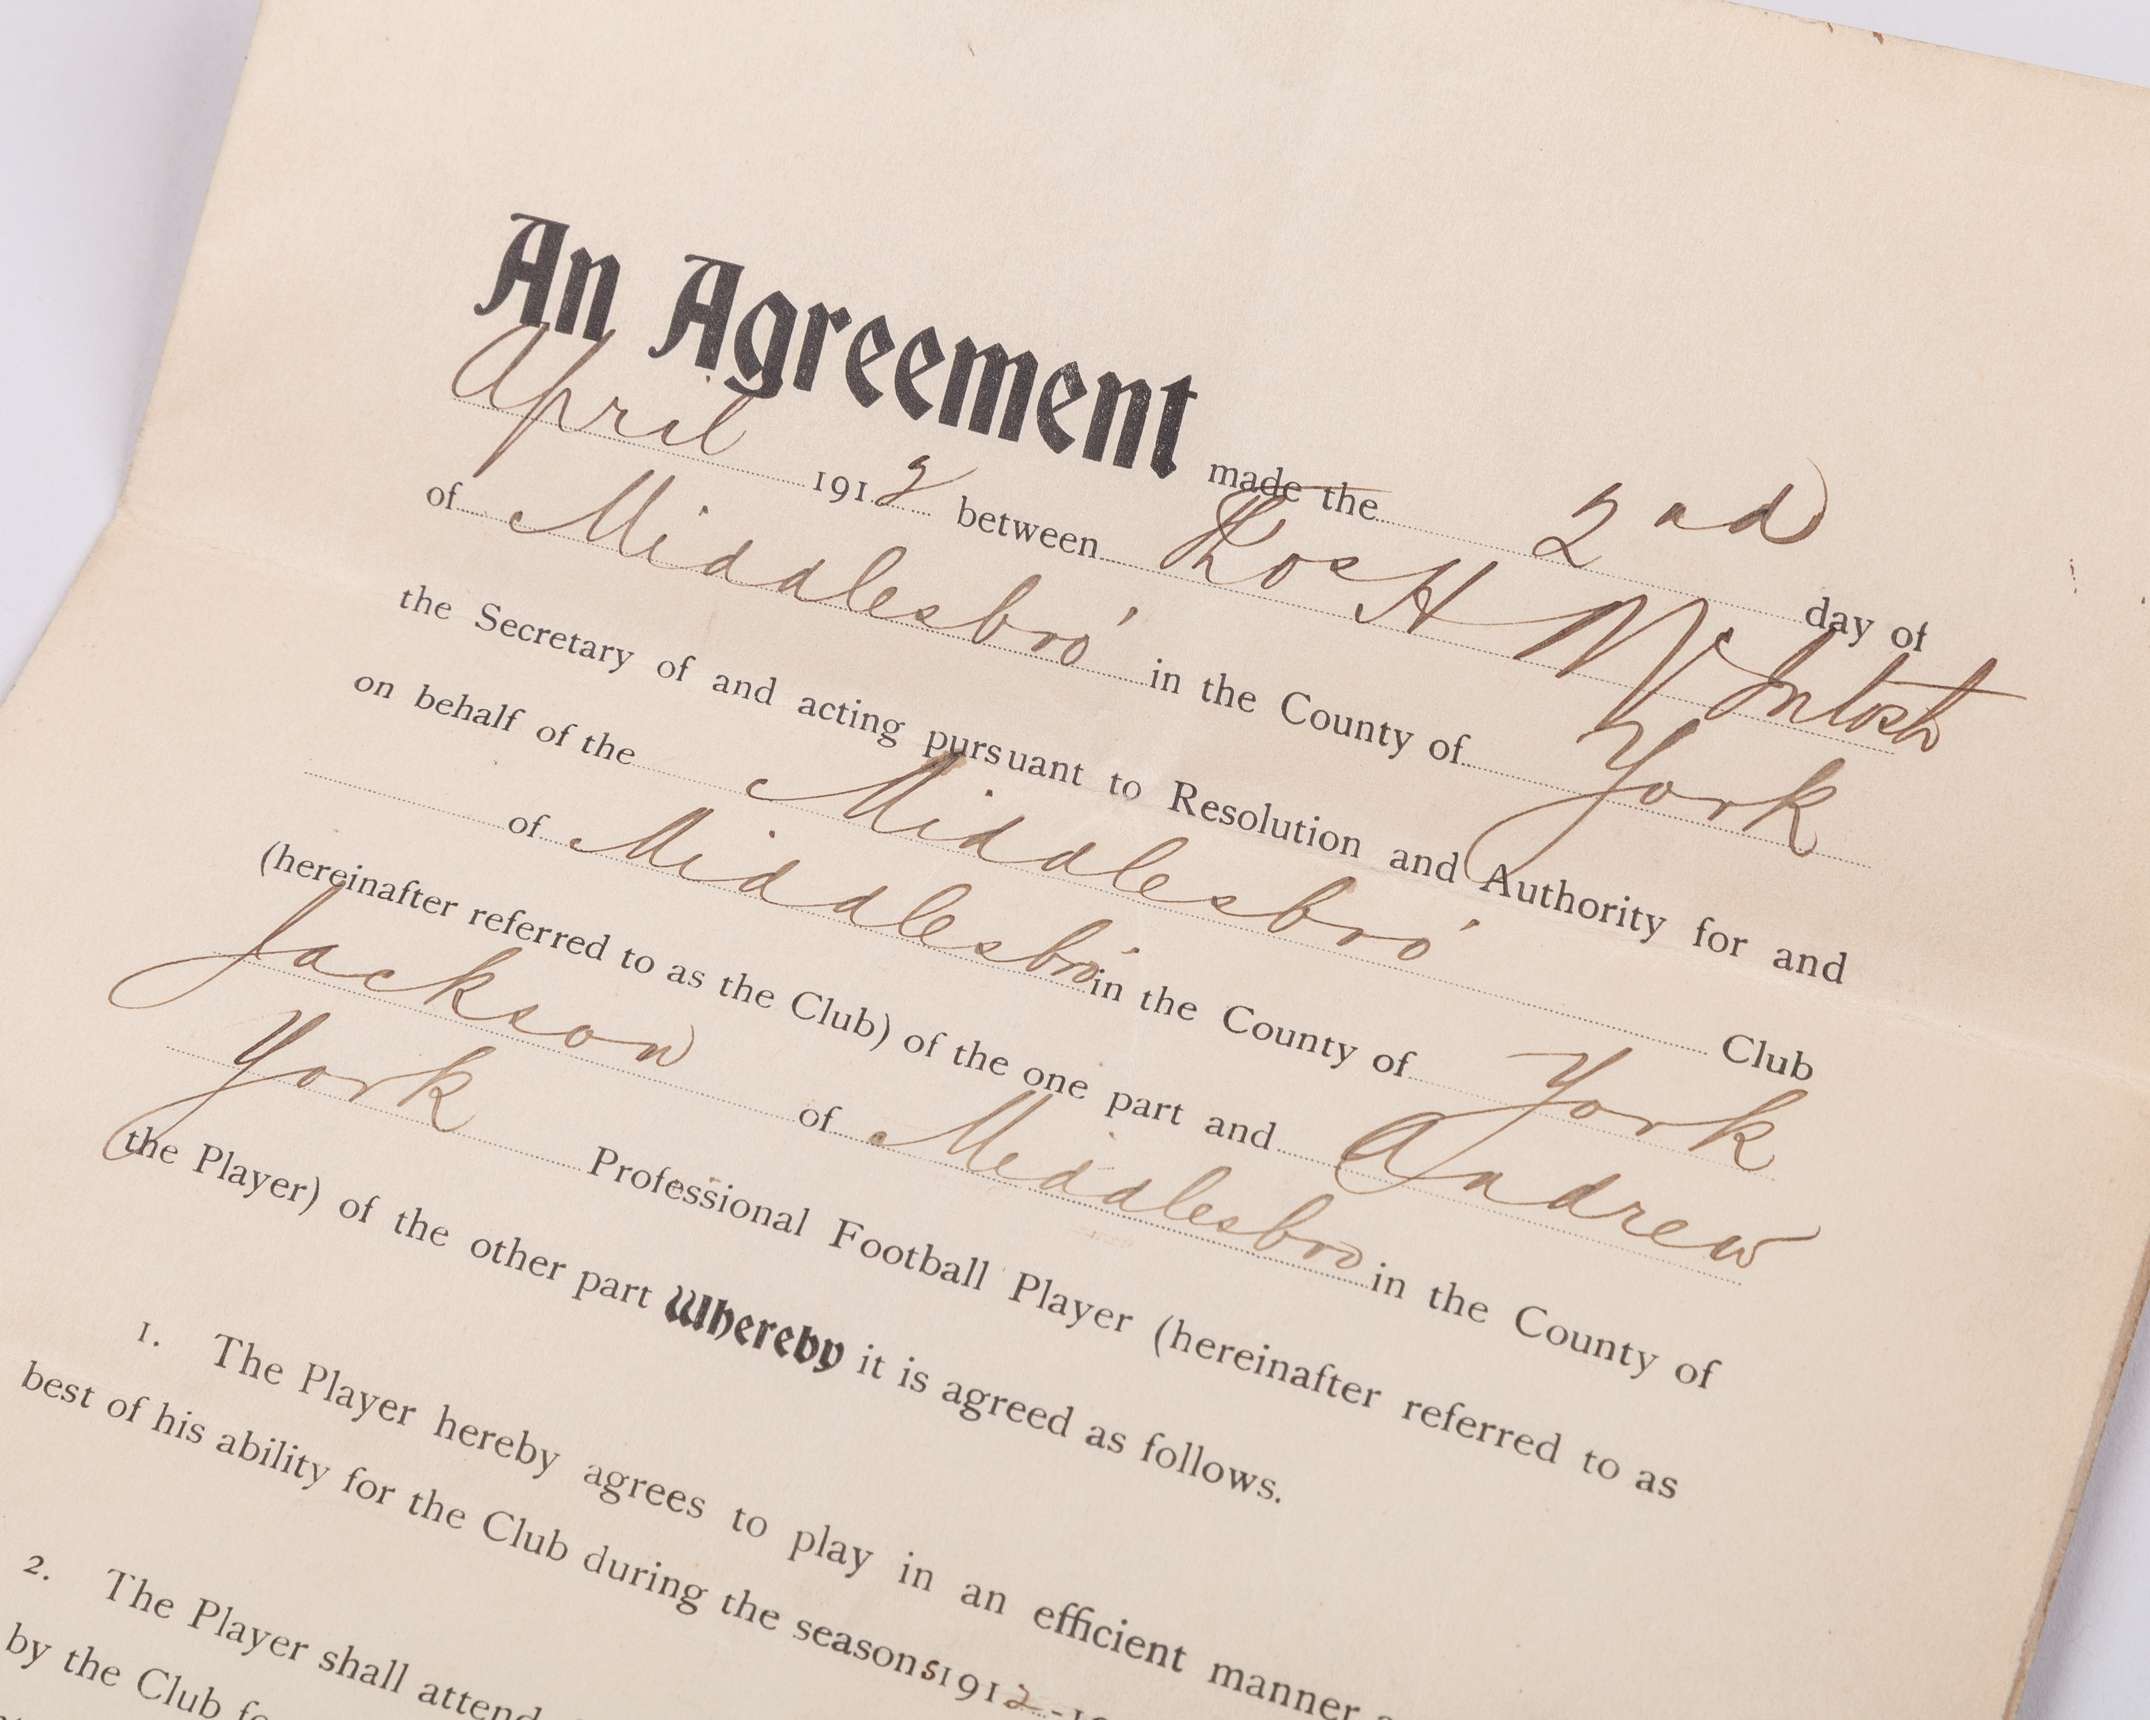 An Agreement made the 2nd day of
April 1912 between Thos H McIntosh
of Middlesbro' in the County of York
the Secretary of and acting pursuant to Resolution and Authority for and
on behalf of the Middlesbro' Club
of Middlesbro' in the County of York
(hereinafter referred to as the Club) of the one part and Andrew
Jackson of Middlesbro in the County of
York Professional Football Player (hereinafter referred to as
the Player) of the other part Whereby it is agreed as follows.
1. The Player hereby agrees to play in an efficient manner
best of his ability for the Club during the seasons 1912-
2. The Player shall attend
by the Club